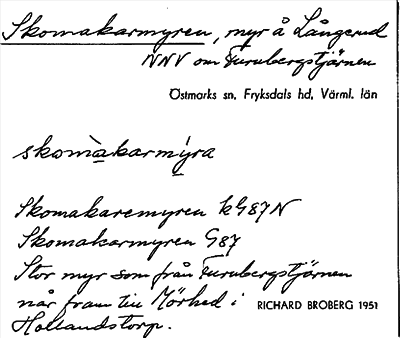 Skomakarmyren, myr å Långerud
NNV om Furubergstjärnen
Östmarks sn, Fryksdals hd, Värml. län
skomàkarmýra
Skomakaremyren k G87N
Skomakarmyren G87
Stor myr som från Furubergstjärnen
når fram till Mörhed i
RICHARD BROBERG 1951
Hollandstorp.